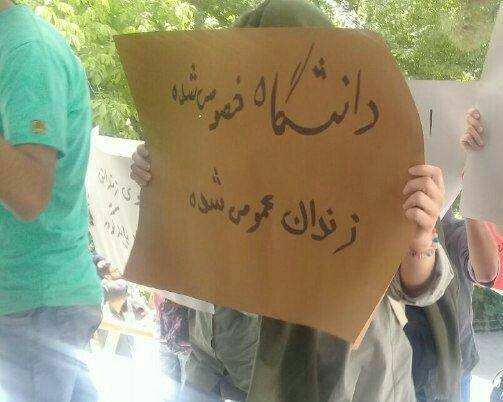 دانشگاه خصوصی شده
زندان عمومی شده